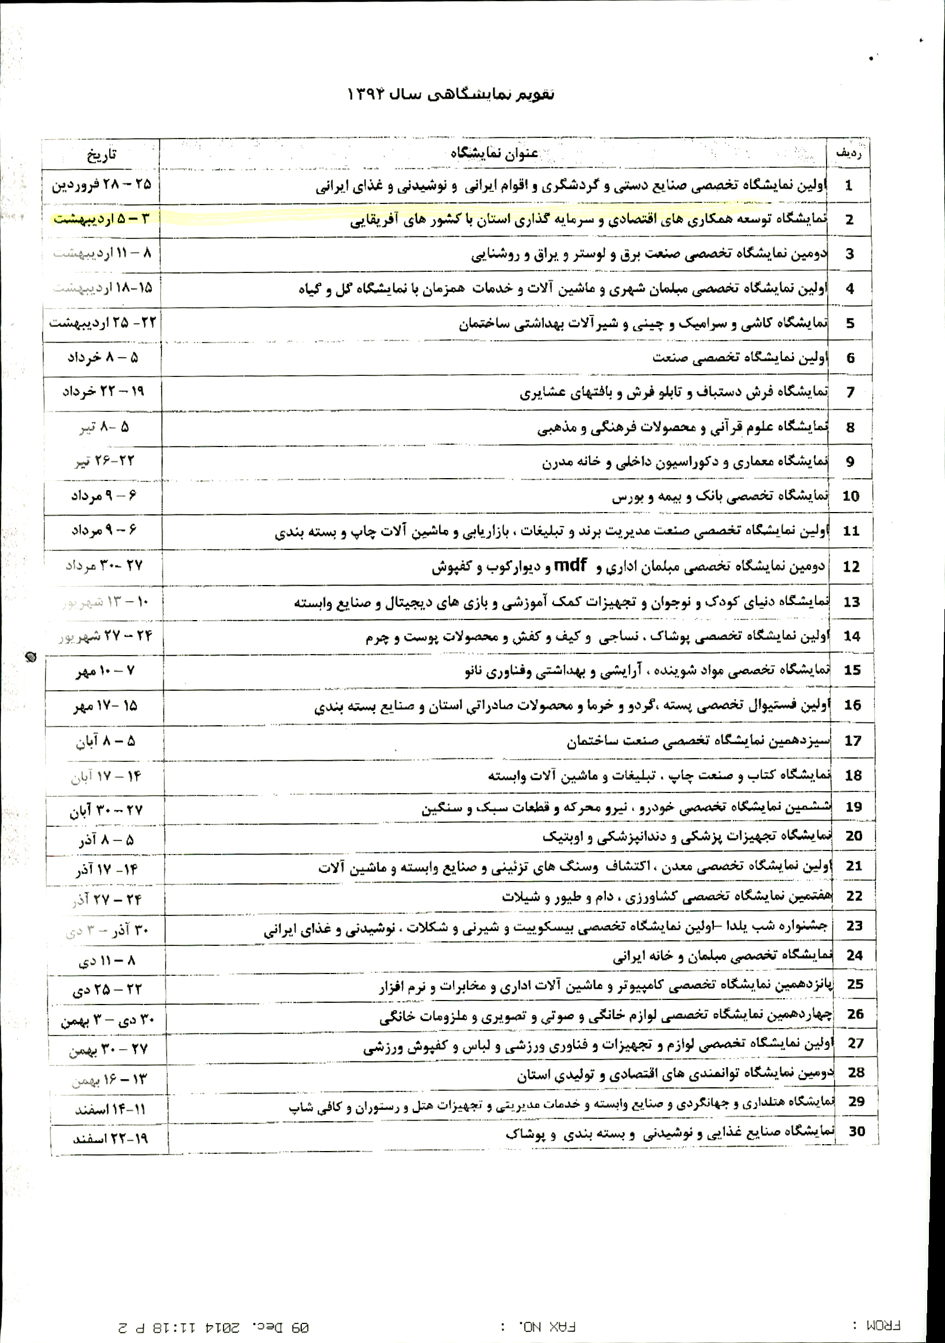 تقویم نمایشگاهی سال ۱۳۹۴
ردیف عنوان نمایشگاه تاریخ
1 اولین نمایشگاه تخصصی صنایع دستی و گردشگری و اقوام ایرانی و نوشیدنی و غذای ایرانی ۲۵ – ۲۸ فروردین
2 نمایشگاه توسعه همکاری های اقتصادی و سرمایه گذاری استان با کشور های آفریقایی ۳ – ۵ اردیبهشت
3 دومین نمایشگاه تخصصی صنعت برق و لوستر و یراق و روشنایی ۸ – ۱۱ اردیبهشت
4 اولین نمایشگاه تخصصی مبلمان شهری و ماشین آلات و خدمات همزمان با نمایشگاه گل و گیاه ۱۵-۱۸ اردیبهشت
5 نمایشگاه کاشی و سرامیک و چینی و شیرآلات بهداشتی ساختمان ۲۲- ۲۵ اردیبهشت
6 اولین نمایشگاه تخصصی صنعت ۵ – ۸ خرداد
7 نمایشگاه فرش دستباف و تابلو فرش و بافتهای عشایری ۱۹ – ۲۲ خرداد
8 نمایشگاه علوم قرآنی و محصولات فرهنگی و مذهبی ۵ -۸ تیر
9 نمایشگاه معماری و دکوراسیون داخلی و خانه مدرن ۲۲-۲۶ تیر
10 نمایشگاه تخصصی بانک و بیمه و بورس ۶ – ۹ مرداد
11 اولین نمایشگاه تخصصی صنعت مدیریت برند و تبلیغات ، بازاریابی و ماشین آلات چاپ و بسته بندی ۶ – ۹ مرداد
12 دومین نمایشگاه تخصصی مبلمان اداری و mdf و دیوارکوب و کفپوش ۲۷ -۳۰ مرداد
13 نمایشگاه دنیای کودک و نوجوان و تجهیزات کمک آموزشی و بازی های دیجیتال و صنایع وابسته ۱۰ – ۱۳ شهریور
14 اولین نمایشگاه تخصصی پوشاک ، نساجی و کیف و کفش و محصولات پوست و چرم ۲۴ – ۲۷ شهریور
15 نمایشگاه تخصصی مواد شوینده ، آرایشی و بهداشتی وفناوری نانو ۷ – ۱۰ مهر
16 اولین فستیوال تخصصی پسته ،گردو و خرما و محصولات صادراتی استان و صنایع بسته بندی ۱۵ -۱۷ مهر
17 سیزدهمین نمایشگاه تخصصی صنعت ساختمان ۵ – ۸ آبان
18 نمایشگاه کتاب و صنعت چاپ ، تبلیغات و ماشین آلات وابسته ۱۴ – ۱۷ آبان
19 ششمین نمایشگاه تخصصی خودرو ، نیرو محرکه و قطعات سبک و سنگین ۲۷ – ۳۰ آبان
20 نمایشگاه تجهیزات پزشکی و دندانپزشکی و اوبتیک ۵ – ۸ آذر
21 اولین نمایشگاه تخصصی معدن ، اکتشاف وسنگ های تزئینی و صنایع وابسته و ماشین آلات ۱۴- ۱۷ آذر
22 هفتمین نمایشگاه تخصصی کشاورزی ، دام و طیور و شیلات ۲۴ – ۲۷ آذر
23 جشنواره شب یلدا –اولین نمایشگاه تخصصی بیسکوییت و شیرنی و شکلات ، نوشیدنی و غذای ایرانی ۳۰ آذر – ۳ دی
24 نمایشگاه تخصصی مبلمان و خانه ایرانی ۸ – ۱۱ دی
25 پانزدهمین نمایشگاه تخصصی کامپیوتر و ماشین آلات اداری و مخابرات و نرم افزار ۲۲ – ۲۵ دی
26 چهاردهمین نمایشگاه تخصصی لوازم خانگی و صوتی و تصویری و ملزومات خانگی ۳۰ دی – ۳ بهمن
27 اولین نمایشگاه تخصصی لوازم و تجهیزات و فناوری ورزشی و لباس و کفپوش ورزشی ۲۷ – ۳۰ بهمن
28 دومین نمایشگاه توانمندی های اقتصادی و تولیدی استان ۱۳ – ۱۶ بهمن
29 نمایشگاه هتلداری و جهانگردی و صنایع وابسته و خدمات مدیریتی و تجهیزات هتل و رستوران و کافی شاپ ۱۱-۱۴ اسفند
30 نمایشگاه صنایع غذایی و نوشیدنی و بسته بندی و پوشاک ۱۹-۲۲ اسفند
FROM : FAX NO. : 09 Dec. 2014 11:18 P 2